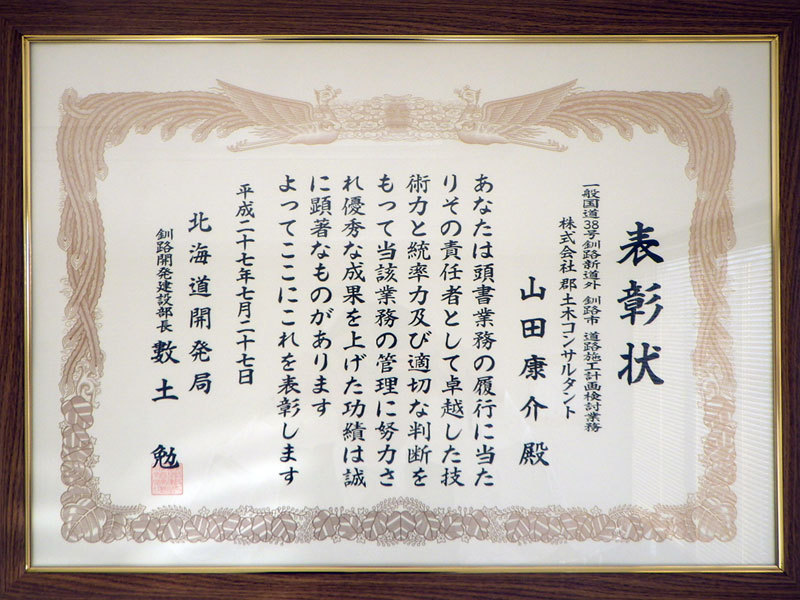 表彰状
一般国道38号釧路新道外 釧路市 道路施工計画検討業務
株式会社 郡土木コンサルタント
山田康介 殿
あなたは頭書業務の履行に当た
りその責任者として卓越した技
術力と統率力及び適切な判断を
もって当該業務の管理に努力さ
れ優秀な成果を上げた功績は誠
に顕著なものがあります
よってここにこれを表彰します
平成二十七年七月二十七日
北海道開発局
釧路開発建設部長 数土 勉